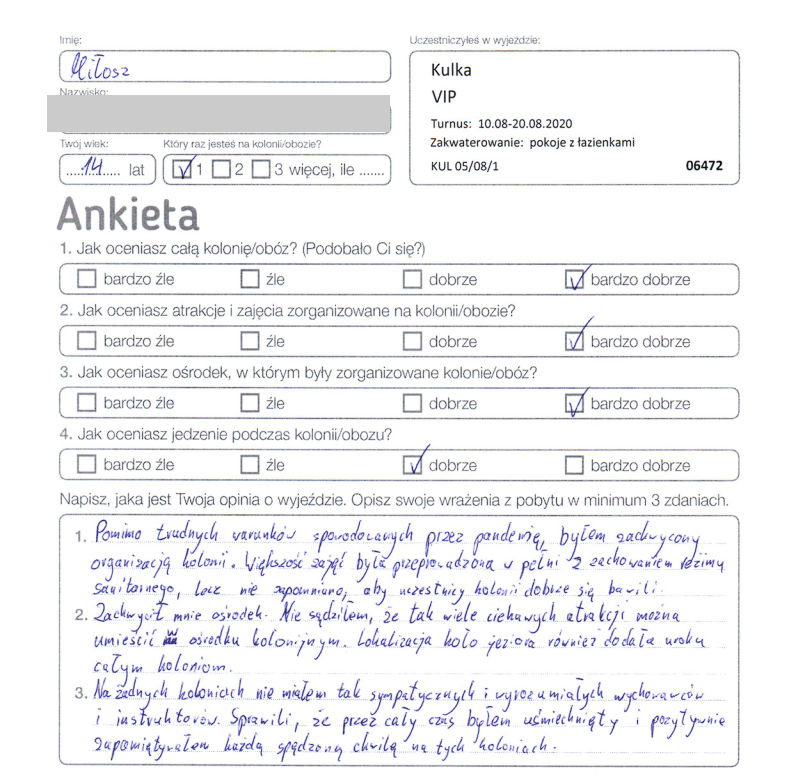 Imię:
Miłosz
Nazwisko:
Twój wiek:
14 lat
Który raz jesteś na kolonii/obozie?
1 2 3 więcej, ile .......
Uczestniczyłeś w wyjeździe:
Kulka
VIP
Turnus: 10.08-20.08.2020
Zakwaterowanie: pokoje z łazienkami
KUL 05/08/1 06472
Ankieta
1. Jak oceniasz całą kolonię/obóz? (Podobało Ci się?)
bardzo źle źle dobrze bardzo dobrze
2. Jak oceniasz atrakcje i zajęcia zorganizowane na kolonii/obozie?
bardzo źle źle dobrze bardzo dobrze
3. Jak oceniasz ośrodek, w którym były zorganizowane kolonie/obóz?
bardzo źle źle dobrze bardzo dobrze
4. Jak oceniasz jedzenie podczas kolonii/obozu?
bardzo źle źle dobrze bardzo dobrze
Napisz, jaka jest Twoja opinia o wyjeździe. Opisz swoje wrażenia z pobytu w minimum 3 zdaniach.
1. Pomimo trudnych warunków spowodowanych przez pandemię, byłem zachwycony
organizacją kolonii. Większość zajęć była przeprowadzona w pełni z zachowaniem reżimu
sanitarnego, lecz nie zapomniano, aby uczestnicy kolonii dobrze się bawili.
2. Zachwycił mnie ośrodek. Nie sądziłem, że tak wiele ciekawych atrakcji można
umieścić w ośrodku kolonijnym. Lokalizacja koło jeziora również dodała uroku
całym koloniom.
3. Na żadnych koloniach nie miałem tak sympatycznych i wyrozumiałych wychowawców
i instruktorów. Sprawili, że przez cały czas byłem uśmiechnięty i pozytywnie
zapamiętywałem każdą spędzoną chwilę na tych koloniach.